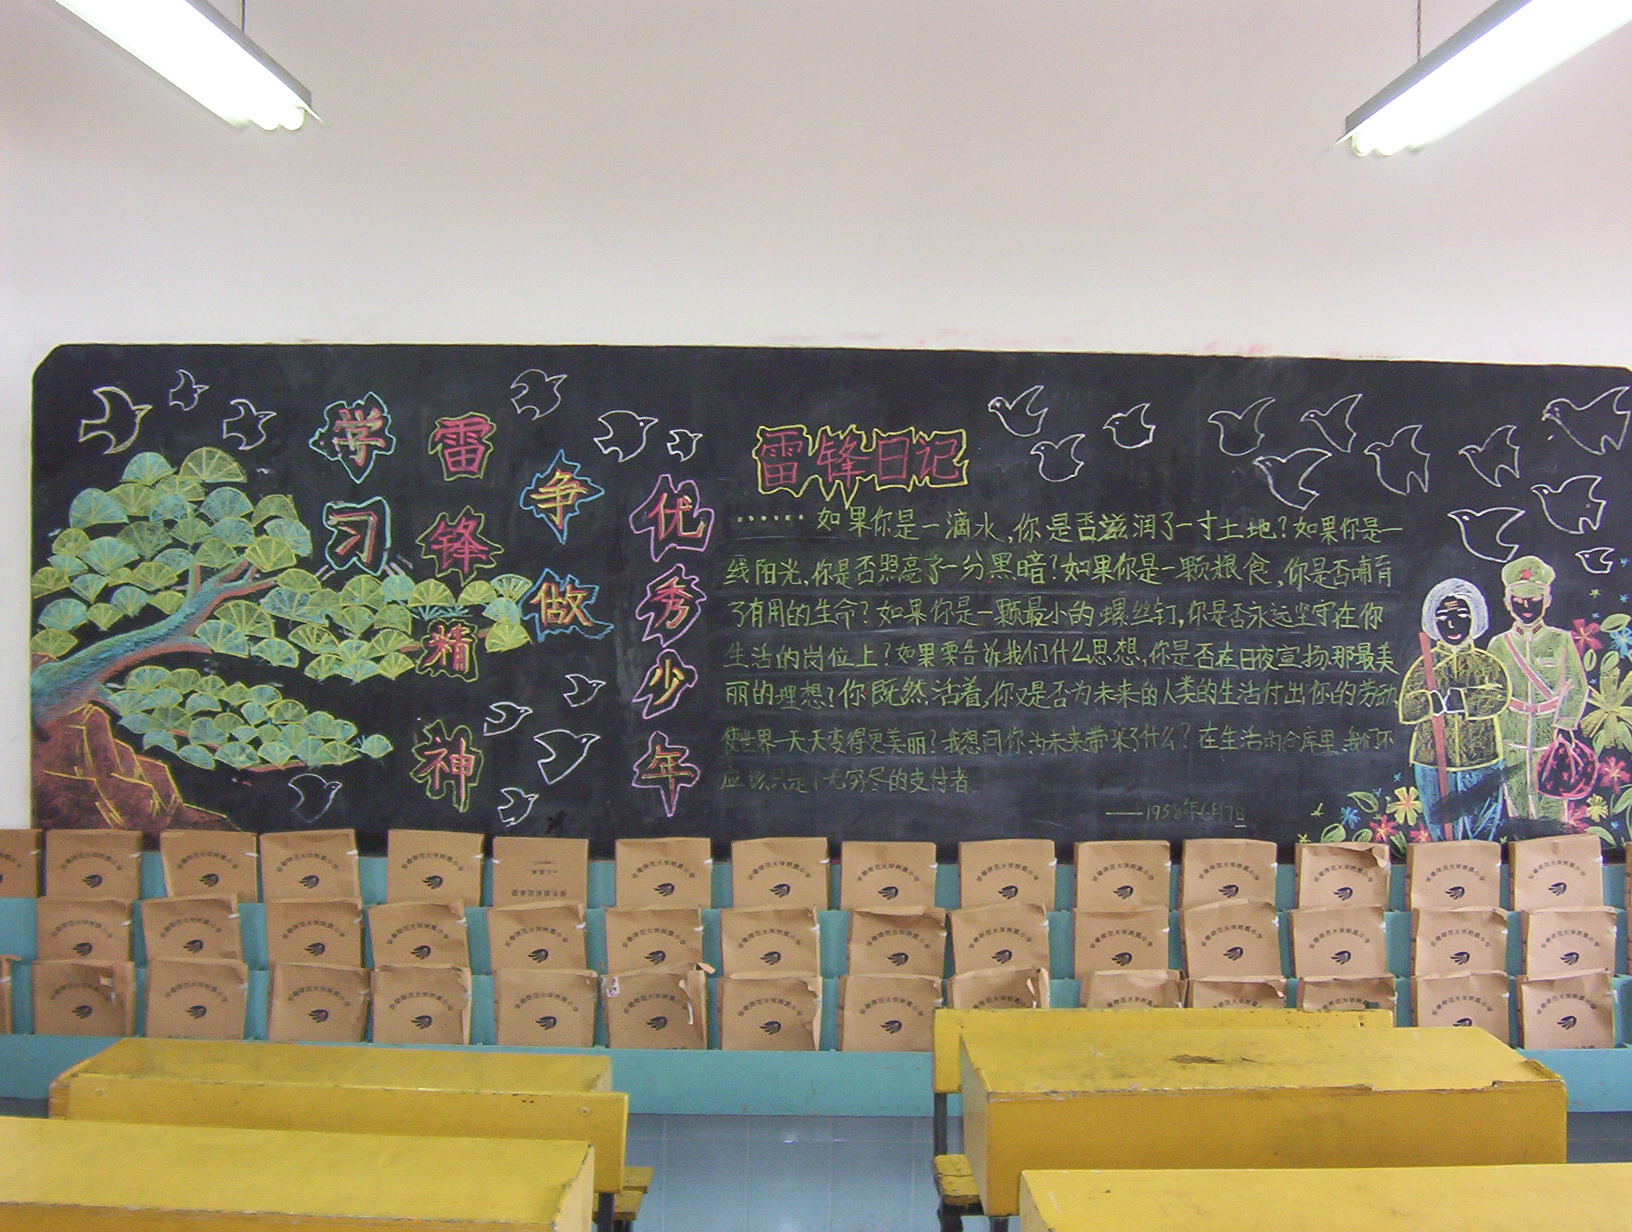 学习
雷锋精神
争做
优秀少年
雷锋日记
······如果你是一滴水,你是否滋润了一寸土地?如果你是一
线阳光,你是否照亮了一分黑暗?如果你是一颗粮食,你是否哺育
了有用的生命?如果你是一颗最小的螺丝钉,你是否永远坚守在你
生活的岗位上?如果要告诉我们什么思想,你是否在日夜宣扬那最美
丽的理想?你既然活着,你又是否为未来的人类的生活付出你的劳动,
使世界一天天变得更美丽?我想问你,为未来带来了什么?在生活的仓库里,我们不
应该只是个无穷尽的支付者
——1958年6月7日